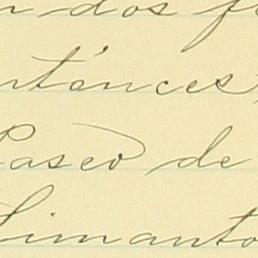 n dos f
ntónces,
Paseo de
Limanto